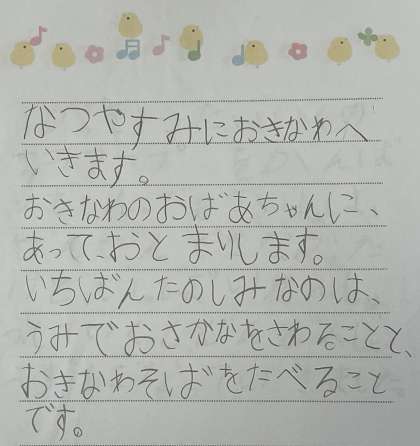 なつやすみにおきなわへ
いきます。
おきなわのおばあちゃんに、
あって、おとまりします。
いちばんたのしみなのは、
うみでおさかなをさわることと、
おきなわそばをたべること
です。